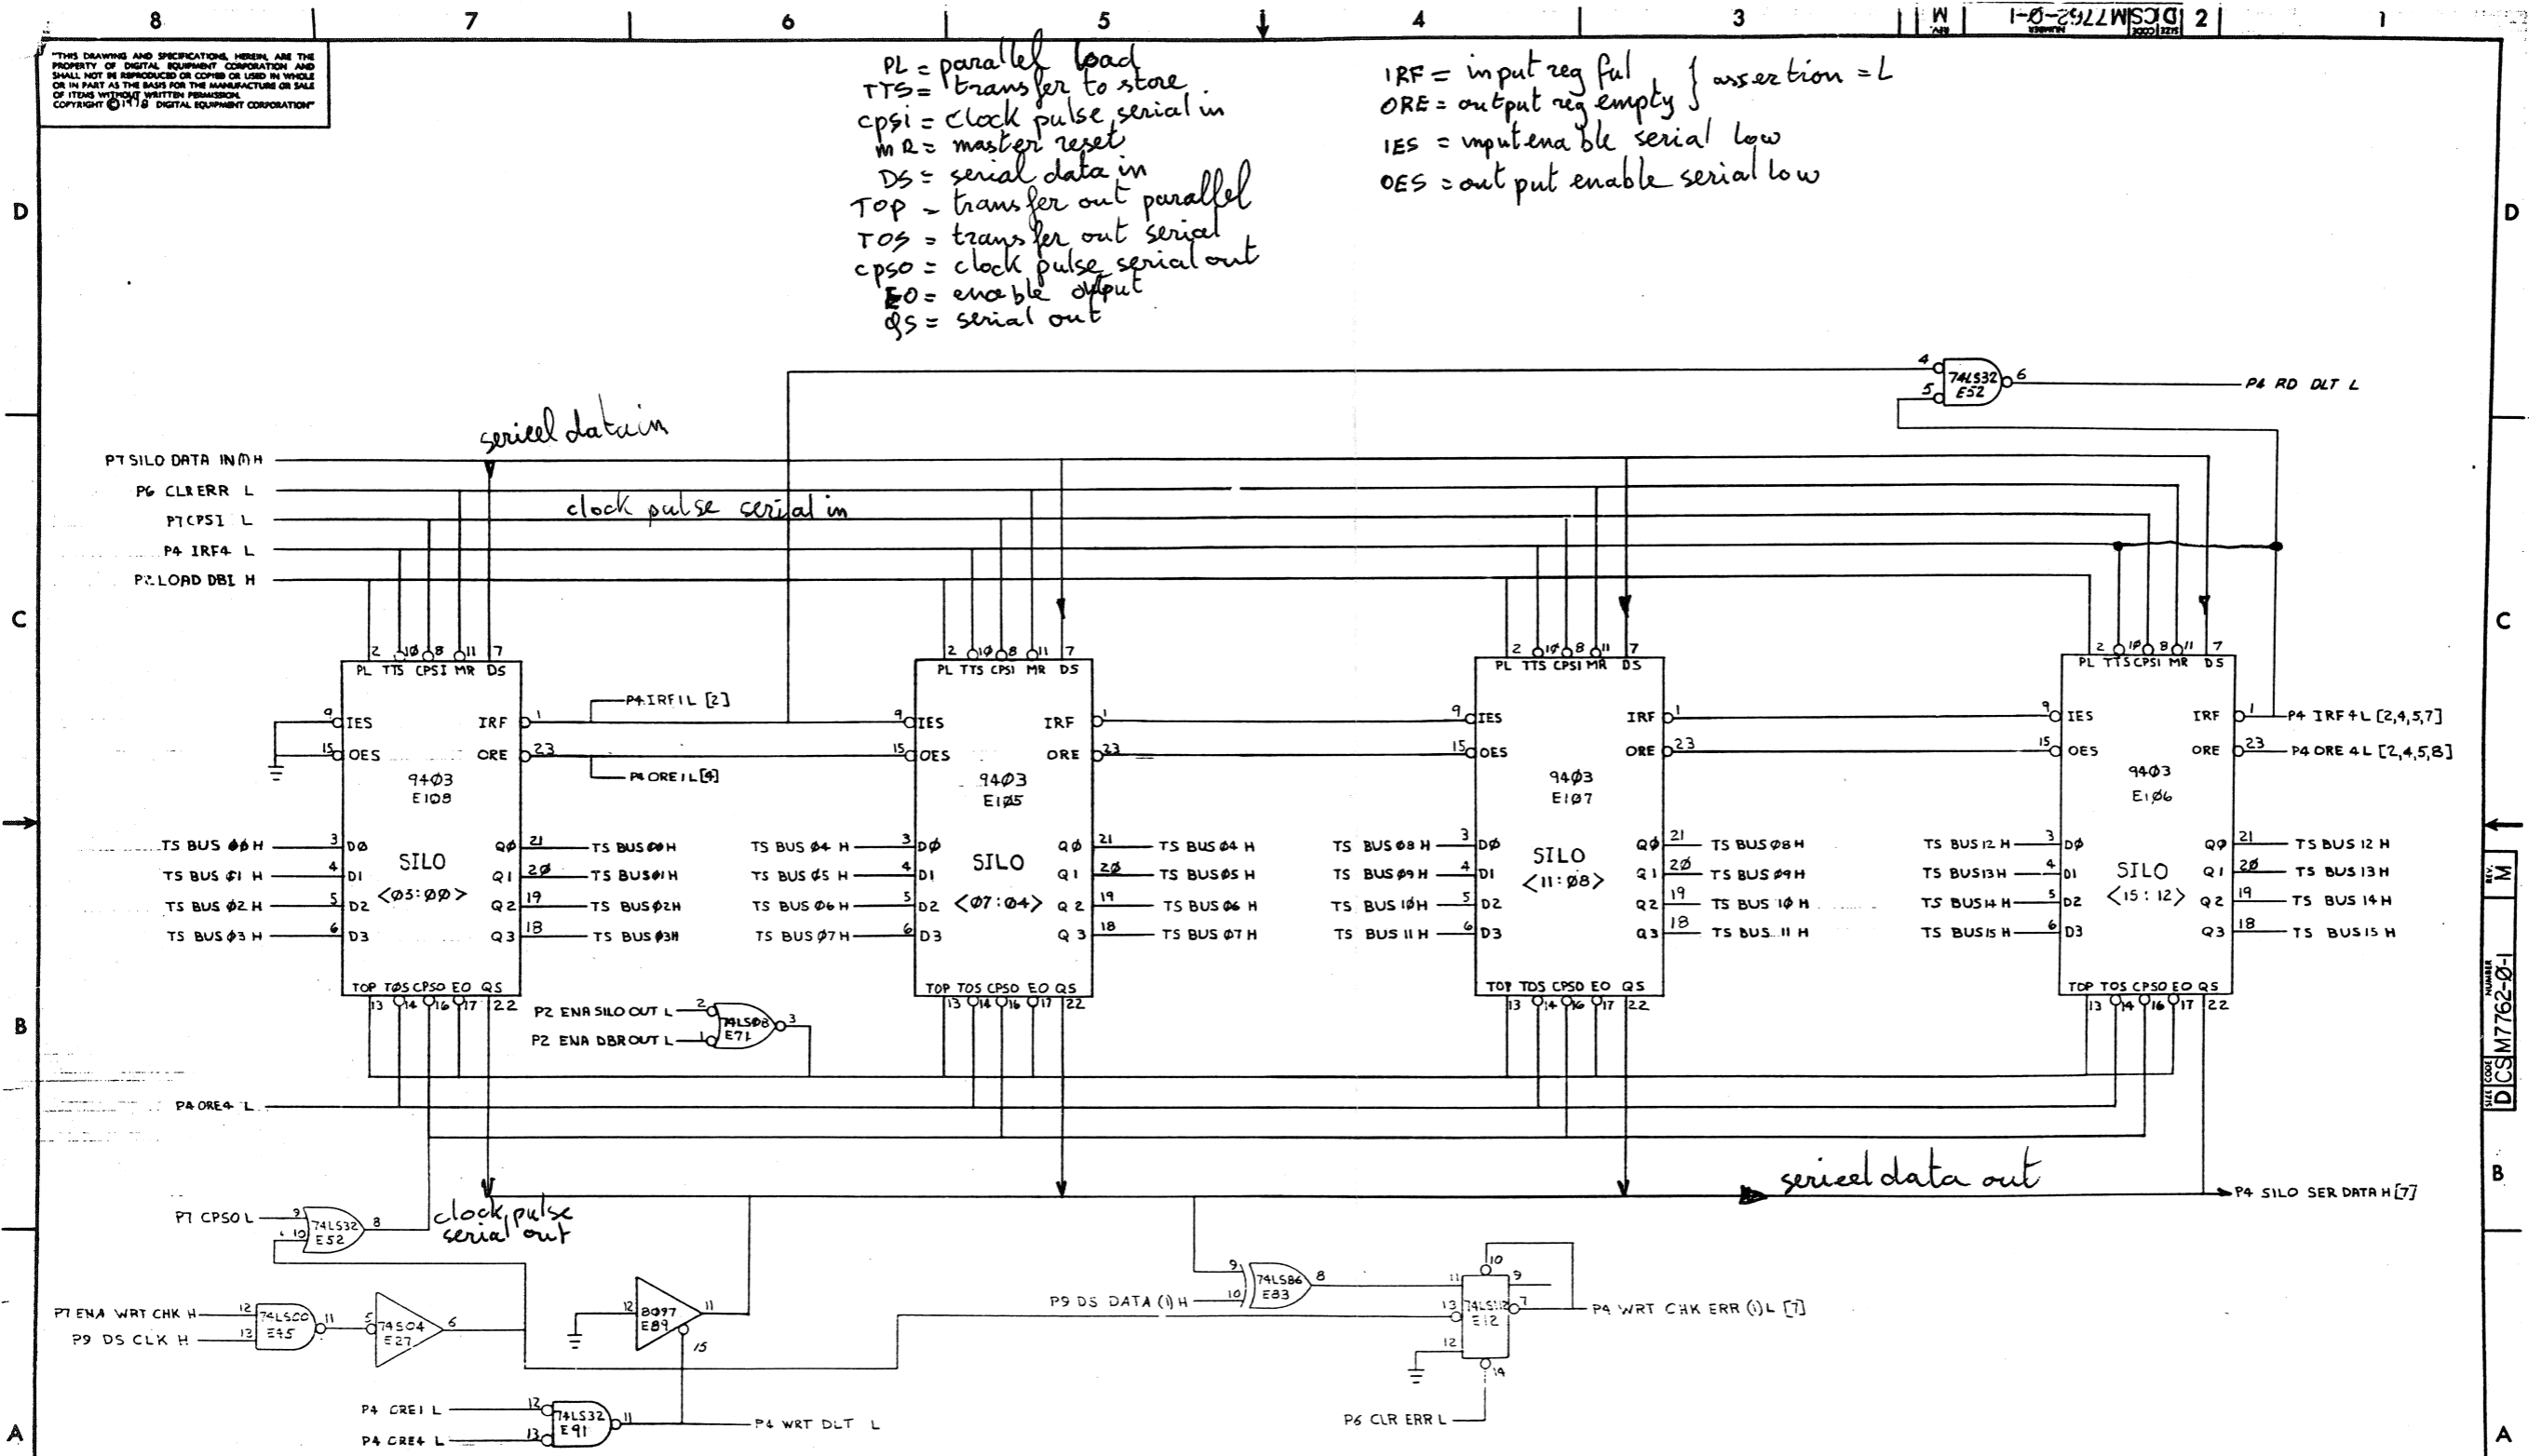 8 7 6 5 4 3 2 1
REV. M NUMBER M7762-0-1 CODE CS SIZE D
"THIS DRAWING AND SPECIFICATIONS, HEREIN, ARE THE
PROPERTY OF DIGITAL EQUIPMENT CORPORATION AND
SHALL NOT BE REPRODUCED OR COPIED OR USED IN WHOLE
OR IN PART AS THE BASIS FOR THE MANUFACTURE OR SALE
OF ITEMS WITHOUT WRITTEN PERMISSION.
COPYRIGHT © 1978 DIGITAL EQUIPMENT CORPORATION"
PL = parallel load
TTS = transfer to store
cpsi = clock pulse serial in
MR = master reset
DS = serial data in
TOP = transfer out parallel
TOS = transfer out serial
cpso = clock pulse serial out
EO = enable output
QS = serial out
IRF = input reg ful } assertion = L
ORE = output reg empty
IES = input enable serial low
OES = output enable serial low
D D
4 5 74LS32 E52 6 P4 RD DLT L
sericel data in
P7 SILO DATA IN(1) H
P6 CLR ERR L
clock pulse serial in
P7 CPSI L
P4 IRF4 L
P2 LOAD DBI H
C C
2 10 8 11 7
PL TTS CPSI MR DS
9 IES IRF 1
P4 IRF1 L [2]
15 OES ORE 23
P4 ORE1 L [4]
9403
E108
TS BUS 00 H 3 D0 Q0 21 TS BUS 00 H
TS BUS 01 H 4 D1 Q1 20 TS BUS 01 H
TS BUS 02 H 5 D2 Q2 19 TS BUS 02 H
TS BUS 03 H 6 D3 Q3 18 TS BUS 03 H
SILO
<05:00>
TOP TOS CPSO EO QS
13 14 16 17 22
2 10 8 11 7
PL TTS CPSI MR DS
9 IES IRF 1
15 OES ORE 23
9403
E105
TS BUS 04 H 3 D0 Q0 21 TS BUS 04 H
TS BUS 05 H 4 D1 Q1 20 TS BUS 05 H
TS BUS 06 H 5 D2 Q2 19 TS BUS 06 H
TS BUS 07 H 6 D3 Q3 18 TS BUS 07 H
SILO
<07:04>
TOP TOS CPSO EO QS
13 14 16 17 22
2 10 8 11 7
PL TTS CPSI MR DS
9 IES IRF 1
15 OES ORE 23
9403
E107
TS BUS 08 H 3 D0 Q0 21 TS BUS 08 H
TS BUS 09 H 4 D1 Q1 20 TS BUS 09 H
TS BUS 10 H 5 D2 Q2 19 TS BUS 10 H
TS BUS 11 H 6 D3 Q3 18 TS BUS 11 H
SILO
<11:08>
TOP TOS CPSO EO QS
13 14 16 17 22
2 10 8 11 7
PL TTS CPSI MR DS
9 IES IRF 1 P4 IRF 4 L [2,4,5,7]
15 OES ORE 23 P4 ORE 4 L [2,4,5,8]
9403
E106
TS BUS 12 H 3 D0 Q0 21 TS BUS 12 H
TS BUS 13 H 4 D1 Q1 20 TS BUS 13 H
TS BUS 14 H 5 D2 Q2 19 TS BUS 14 H
TS BUS 15 H 6 D3 Q3 18 TS BUS 15 H
SILO
<15:12>
TOP TOS CPSO EO QS
13 14 16 17 22
P2 ENA SILO OUT L 2
P2 ENA DBR OUT L 1
74LS08 E71 3
B B
SIZE D CODE CS NUMBER M7762-0-1 REV. M
P4 ORE4 L
sericel data out
P4 SILO SER DATA H [7]
P7 CPSO L 9 10 74LS32 E52 8
clock pulse
serial out
P7 ENA WRT CHK H 12
P9 DS CLK H 13
74LS00 E45 11
5 74S04 E27 6
12 8097 E89 11 15
P4 ORE1 L 12
P4 ORE4 L 13
74LS32 E91 11 P4 WRT DLT L
P9 DS DATA (1) H 9 10 74LS86 E83 8
11 13 12 10 9 7 14 74LS112 E12
P4 WRT CHK ERR (1) L [7]
P6 CLR ERR L
A A